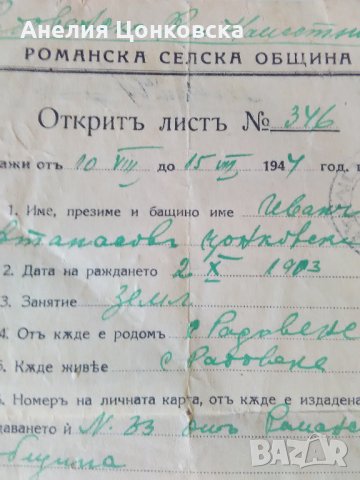 Анелия Цонковска
РОМАНСКА СЕЛСКА ОБЩИНА
Открить листъ № 346
ажи отъ 10 VIII до 15 VIII 1944 год. в
1. Име, презиме и бащино име Иванч
Атанасовъ Цонковски
2. Дата на раждането 2 X 1903
3. Занятие Земл
4. Отъ кѫде е родомъ с Радовене
5. Кѫде живѣе с Радовене
6. Номеръ на личната карта, отъ кѫде е издадена
даването ѝ № 33 отъ Романс
община
bazar.bg